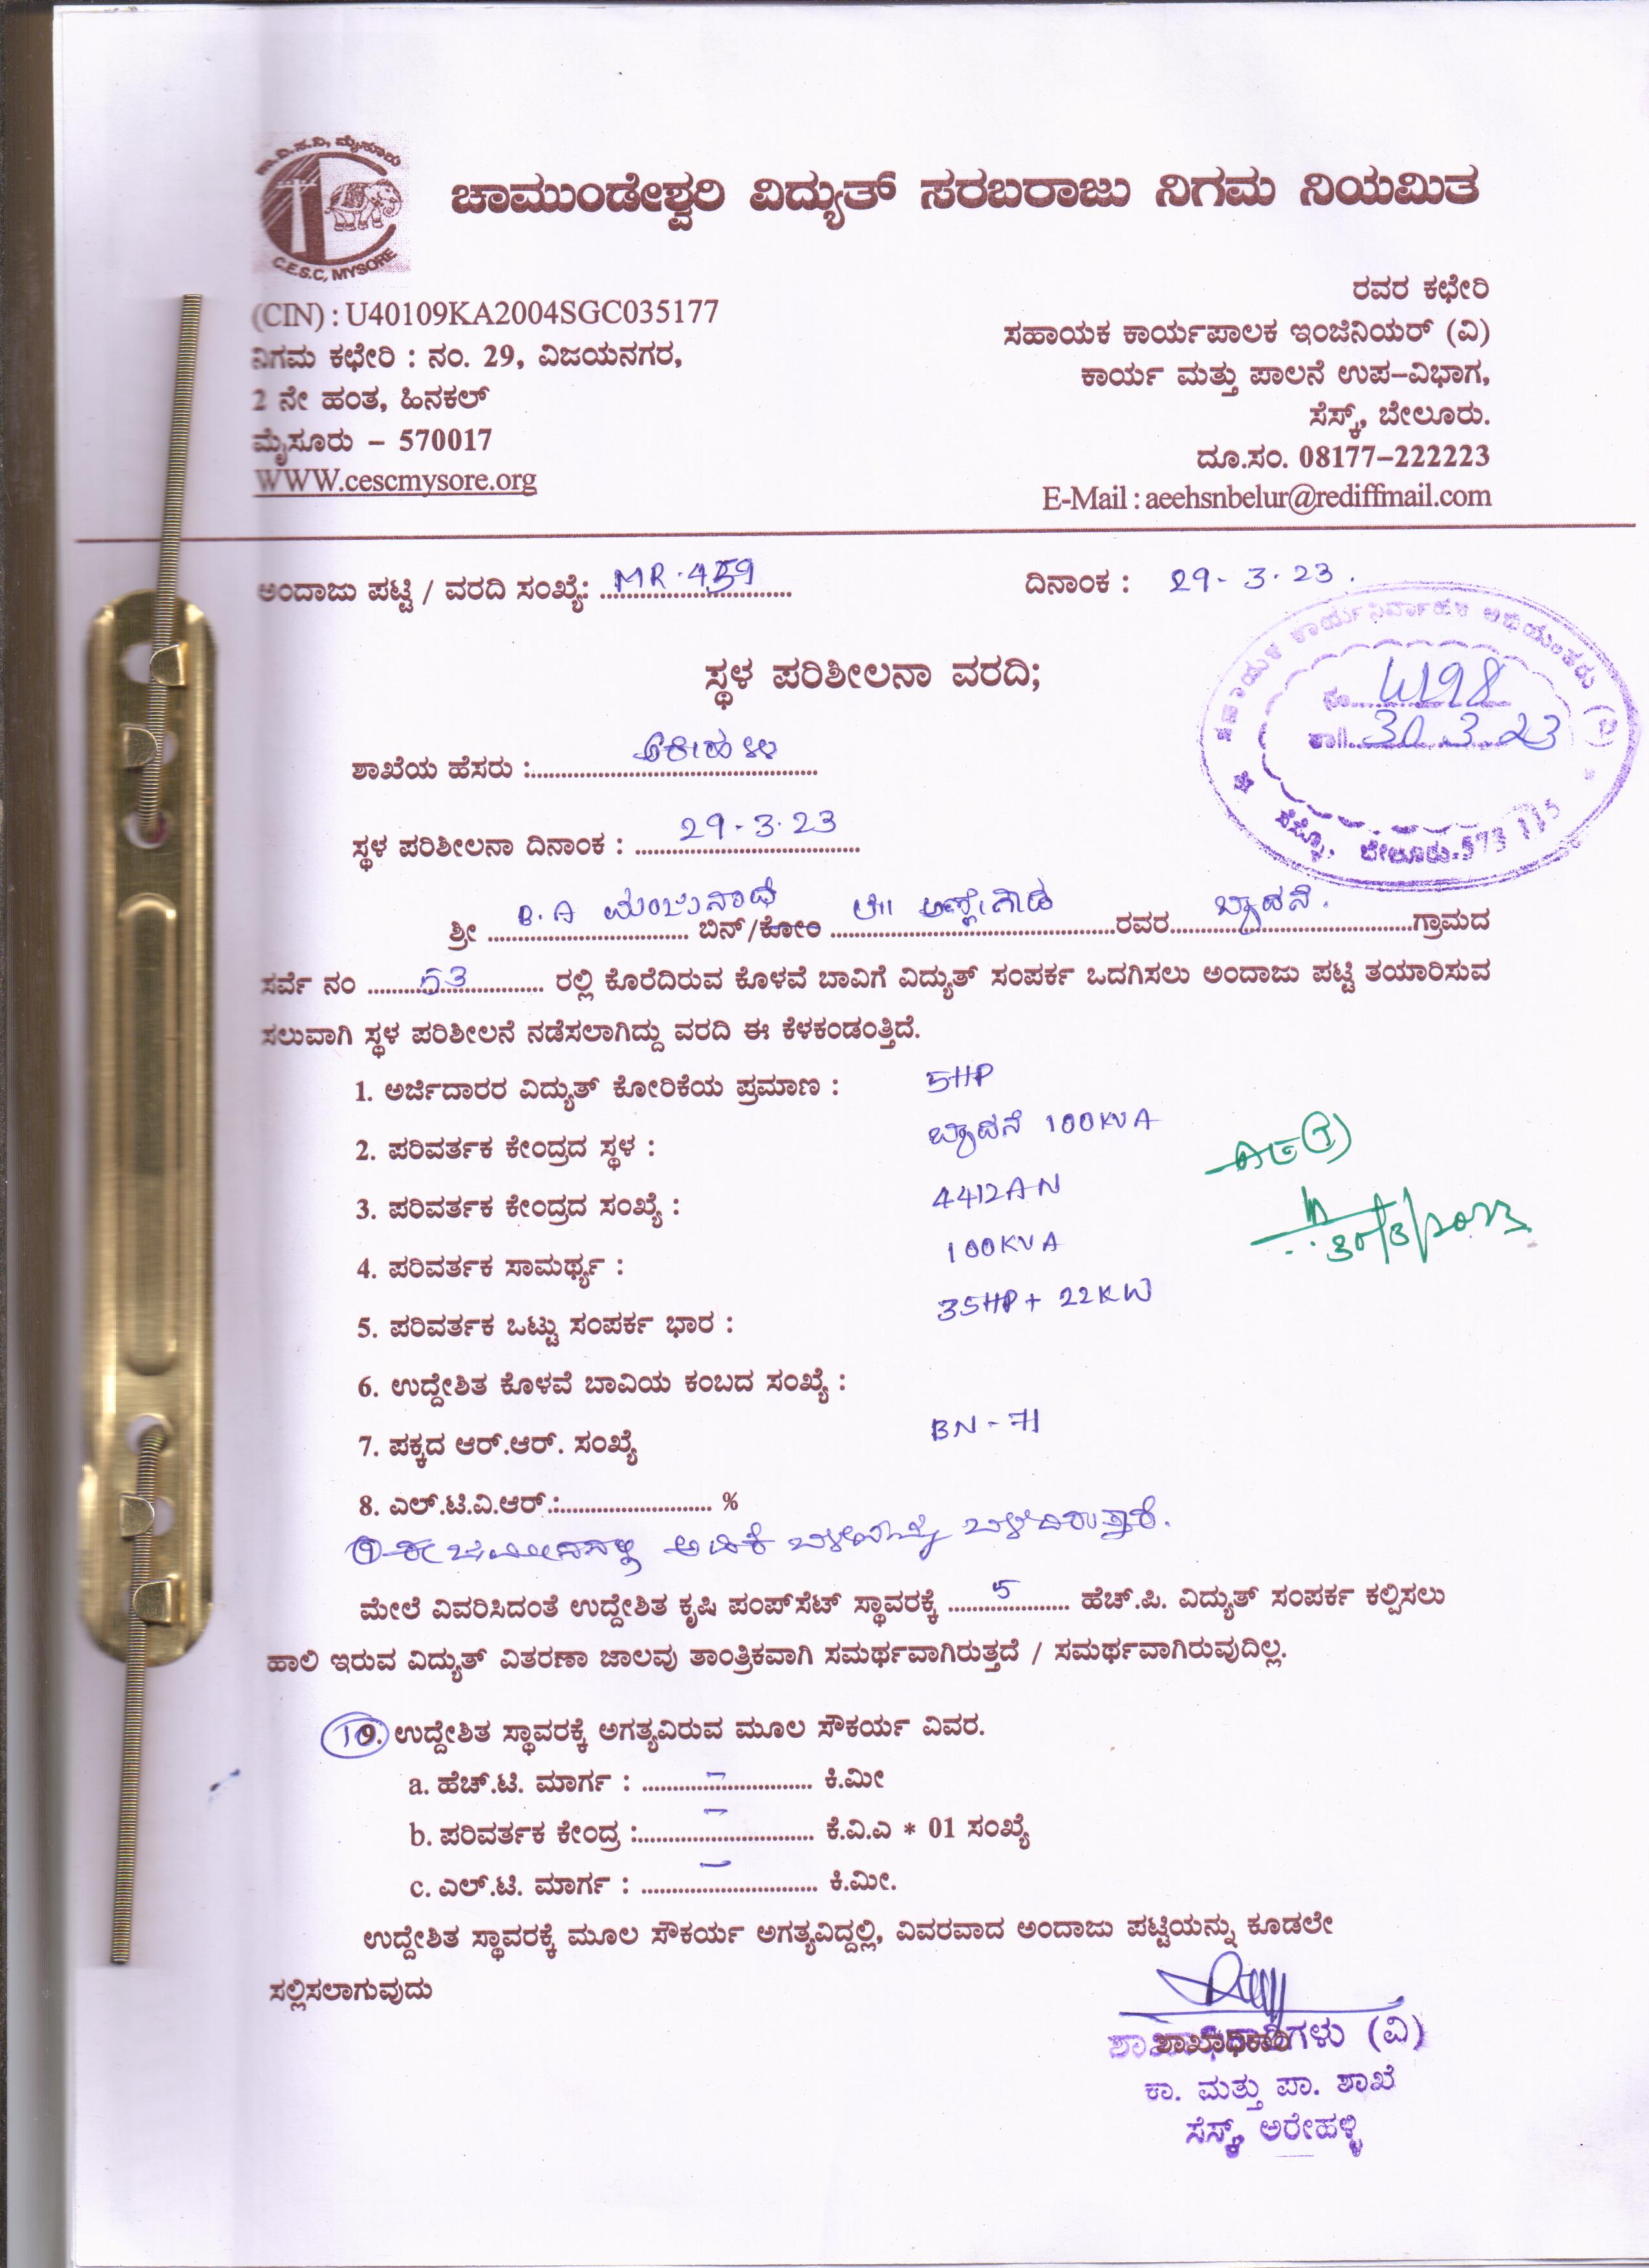 ಚಾ.ವಿ.ಸ.ನಿ, ಮೈಸೂರು
C.E.S.C, MYSORE
ಚಾಮುಂಡೇಶ್ವರಿ ವಿದ್ಯುತ್ ಸರಬರಾಜು ನಿಗಮ ನಿಯಮಿತ
(CIN) : U40109KA2004SGC035177
ನಿಗಮ ಕಛೇರಿ : ನಂ. 29, ವಿಜಯನಗರ,
2 ನೇ ಹಂತ, ಹಿನಕಲ್
ಮೈಸೂರು – 570017
WWW.cescmysore.org
ರವರ ಕಛೇರಿ
ಸಹಾಯಕ ಕಾರ್ಯಪಾಲಕ ಇಂಜಿನಿಯರ್ (ವಿ)
ಕಾರ್ಯ ಮತ್ತು ಪಾಲನೆ ಉಪ–ವಿಭಾಗ,
ಸೆಸ್ಕ್, ಬೇಲೂರು.
ದೂ.ಸಂ. 08177–222223
E-Mail : aeehsnbelur@rediffmail.com
ಅಂದಾಜು ಪಟ್ಟಿ / ವರದಿ ಸಂಖ್ಯೆ: MR.459
ದಿನಾಂಕ : 29-3-23.
ಸಹಾಯಕ ಕಾರ್ಯನಿರ್ವಾಹಕ ಅಭಿಯಂತರರು (ವಿ)
ನಂ. 4198
ದಿ|| 30.3.23
ಸೆಸ್ಕಾಂ, ಬೇಲೂರು.573 115
ಸ್ಥಳ ಪರಿಶೀಲನಾ ವರದಿ;
ಶಾಖೆಯ ಹೆಸರು : ಅರೇಹಳ್ಳಿ
ಸ್ಥಳ ಪರಿಶೀಲನಾ ದಿನಾಂಕ : 29-3-23
ಶ್ರೀ B.A ಮಂಜುನಾಥ ಬಿನ್/ಕೋಂ ಅಣ್ಣೇಗೌಡ ರವರ ಬ್ಯಾದನೆ. ಗ್ರಾಮದ
ಸರ್ವೆ ನಂ 53 ರಲ್ಲಿ ಕೊರೆದಿರುವ ಕೊಳವೆ ಬಾವಿಗೆ ವಿದ್ಯುತ್ ಸಂಪರ್ಕ ಒದಗಿಸಲು ಅಂದಾಜು ಪಟ್ಟಿ ತಯಾರಿಸುವ
ಸಲುವಾಗಿ ಸ್ಥಳ ಪರಿಶೀಲನೆ ನಡೆಸಲಾಗಿದ್ದು ವರದಿ ಈ ಕೆಳಕಂಡಂತ್ತಿದೆ.
1. ಅರ್ಜಿದಾರರ ವಿದ್ಯುತ್ ಕೋರಿಕೆಯ ಪ್ರಮಾಣ : 5HP
2. ಪರಿವರ್ತಕ ಕೇಂದ್ರದ ಸ್ಥಳ : ಬ್ಯಾದನೆ 100KVA
3. ಪರಿವರ್ತಕ ಕೇಂದ್ರದ ಸಂಖ್ಯೆ : 4412AN
30/3/2023
4. ಪರಿವರ್ತಕ ಸಾಮರ್ಥ್ಯ : 100KVA
5. ಪರಿವರ್ತಕ ಒಟ್ಟು ಸಂಪರ್ಕ ಭಾರ : 35HP + 22KW
6. ಉದ್ದೇಶಿತ ಕೊಳವೆ ಬಾವಿಯ ಕಂಬದ ಸಂಖ್ಯೆ :
7. ಪಕ್ಕದ ಆರ್.ಆರ್. ಸಂಖ್ಯೆ BN - 71
8. ಎಲ್.ಟಿ.ವಿ.ಆರ್.: %
9 ಈ ಜಮೀನಿನಲ್ಲಿ ಅಡಿಕೆ ಬೆಳೆಯನ್ನು ಬೆಳೆದಿರುತ್ತಾರೆ.
ಮೇಲೆ ವಿವರಿಸಿದಂತೆ ಉದ್ದೇಶಿತ ಕೃಷಿ ಪಂಪ್‌ಸೆಟ್ ಸ್ಥಾವರಕ್ಕೆ 5 ಹೆಚ್.ಪಿ. ವಿದ್ಯುತ್ ಸಂಪರ್ಕ ಕಲ್ಪಿಸಲು
ಹಾಲಿ ಇರುವ ವಿದ್ಯುತ್ ವಿತರಣಾ ಜಾಲವು ತಾಂತ್ರಿಕವಾಗಿ ಸಮರ್ಥವಾಗಿರುತ್ತದೆ / ಸಮರ್ಥವಾಗಿರುವುದಿಲ್ಲ.
10 9. ಉದ್ದೇಶಿತ ಸ್ಥಾವರಕ್ಕೆ ಅಗತ್ಯವಿರುವ ಮೂಲ ಸೌಕರ್ಯ ವಿವರ.
a. ಹೆಚ್.ಟಿ. ಮಾರ್ಗ : – ಕಿ.ಮೀ
b. ಪರಿವರ್ತಕ ಕೇಂದ್ರ : – ಕೆ.ವಿ.ಎ * 01 ಸಂಖ್ಯೆ
c. ಎಲ್.ಟಿ. ಮಾರ್ಗ : – ಕಿ.ಮೀ.
ಉದ್ದೇಶಿತ ಸ್ಥಾವರಕ್ಕೆ ಮೂಲ ಸೌಕರ್ಯ ಅಗತ್ಯವಿದ್ದಲ್ಲಿ, ವಿವರವಾದ ಅಂದಾಜು ಪಟ್ಟಿಯನ್ನು ಕೂಡಲೇ
ಸಲ್ಲಿಸಲಾಗುವುದು
ಶಾಖಾಧಿಕಾರಿಗಳು (ವಿ)
ಕಾ. ಮತ್ತು ಪಾ. ಶಾಖೆ
ಸೆಸ್ಕ್, ಅರೇಹಳ್ಳಿ